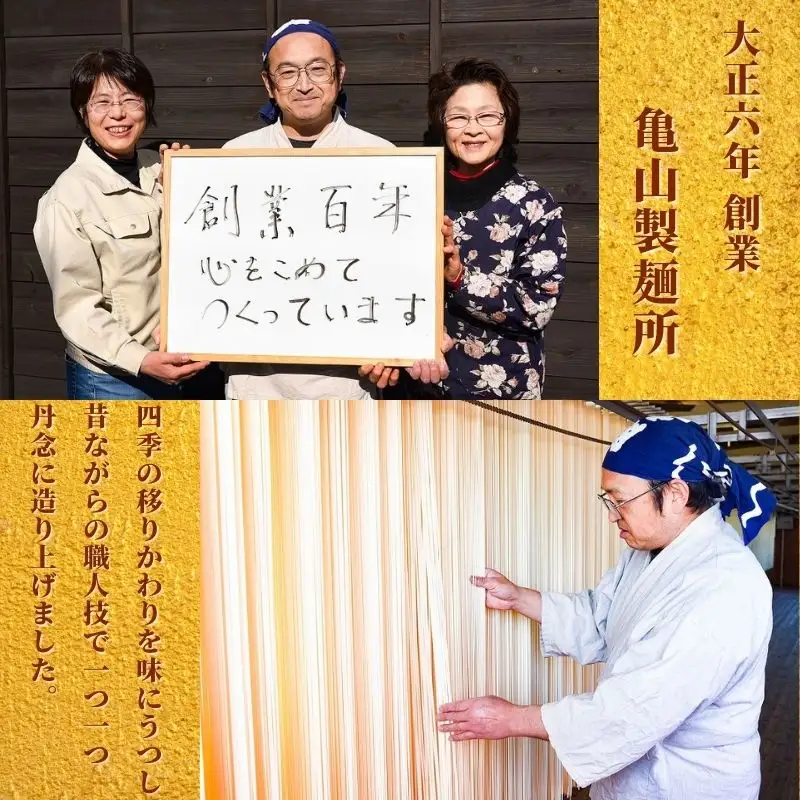 大正六年 創業
亀山製麺所
創業百年
心をこめて
つくっています
四季の移りかわりを味にうつし
昔ながらの職人技で一つ一つ
丹念に造り上げました。